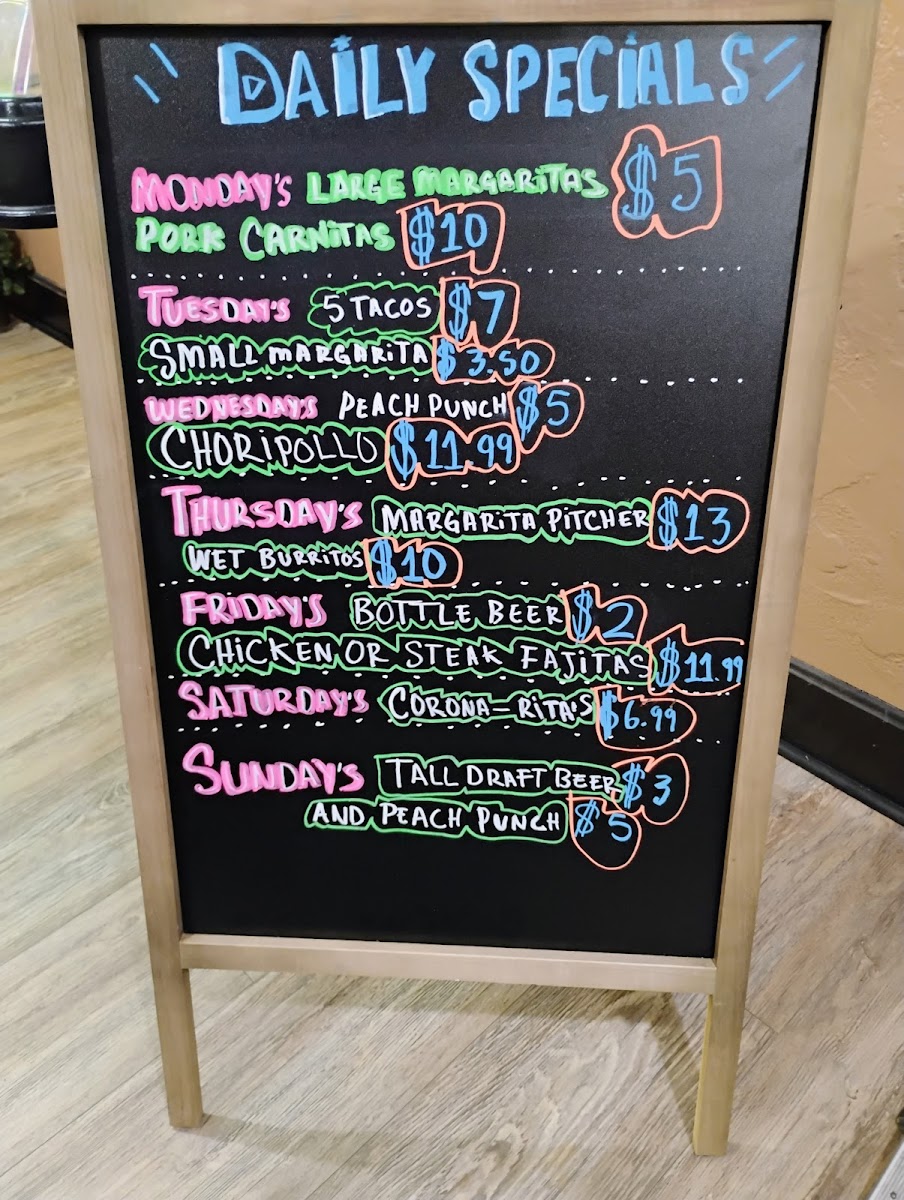 DAILY SPECIALS
MONDAY'S LARGE MARGARITAS $5
PORK CARNITAS $10
TUESDAY'S 5 TACOS $7
SMALL MARGARITA $3.50
WEDNESDAY'S PEACH PUNCH $5
CHORIPOLLO $11.99
THURSDAY'S MARGARITA PITCHER $13
WET BURRITOS $10
FRIDAY'S BOTTLE BEER $2
CHICKEN OR STEAK FAJITAS $11.99
SATURDAY'S CORONA-RITA'S $6.99
SUNDAY'S TALL DRAFT BEER $3
AND PEACH PUNCH $5